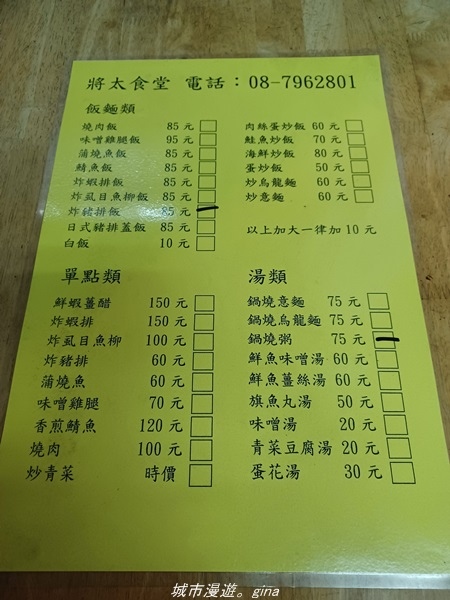 將太食堂 電話：08-7962801
飯麵類
燒肉飯 85 元
味噌雞腿飯 95 元
蒲燒魚飯 85 元
鯖魚飯 85 元
炸蝦排飯 85 元
炸虱目魚柳飯 85 元
炸豬排飯 85 元
日式豬排蓋飯 85 元
白飯 10 元
肉絲蛋炒飯 60 元
鮭魚炒飯 70 元
海鮮炒飯 80 元
蛋炒飯 50 元
炒烏龍麵 60 元
炒意麵 60 元
以上加大一律加 10 元
單點類
鮮蝦薑醋 150 元
炸蝦排 150 元
炸虱目魚柳 100 元
炸豬排 60 元
蒲燒魚 60 元
味噌雞腿 70 元
香煎鯖魚 120 元
燒肉 100 元
炒青菜 時價
湯類
鍋燒意麵 75 元
鍋燒烏龍麵 75 元
鍋燒粥 75 元
鮮魚味噌湯 60 元
鮮魚薑絲湯 60 元
旗魚丸湯 50 元
味噌湯 20 元
青菜豆腐湯 20 元
蛋花湯 30 元
城市漫遊。gina